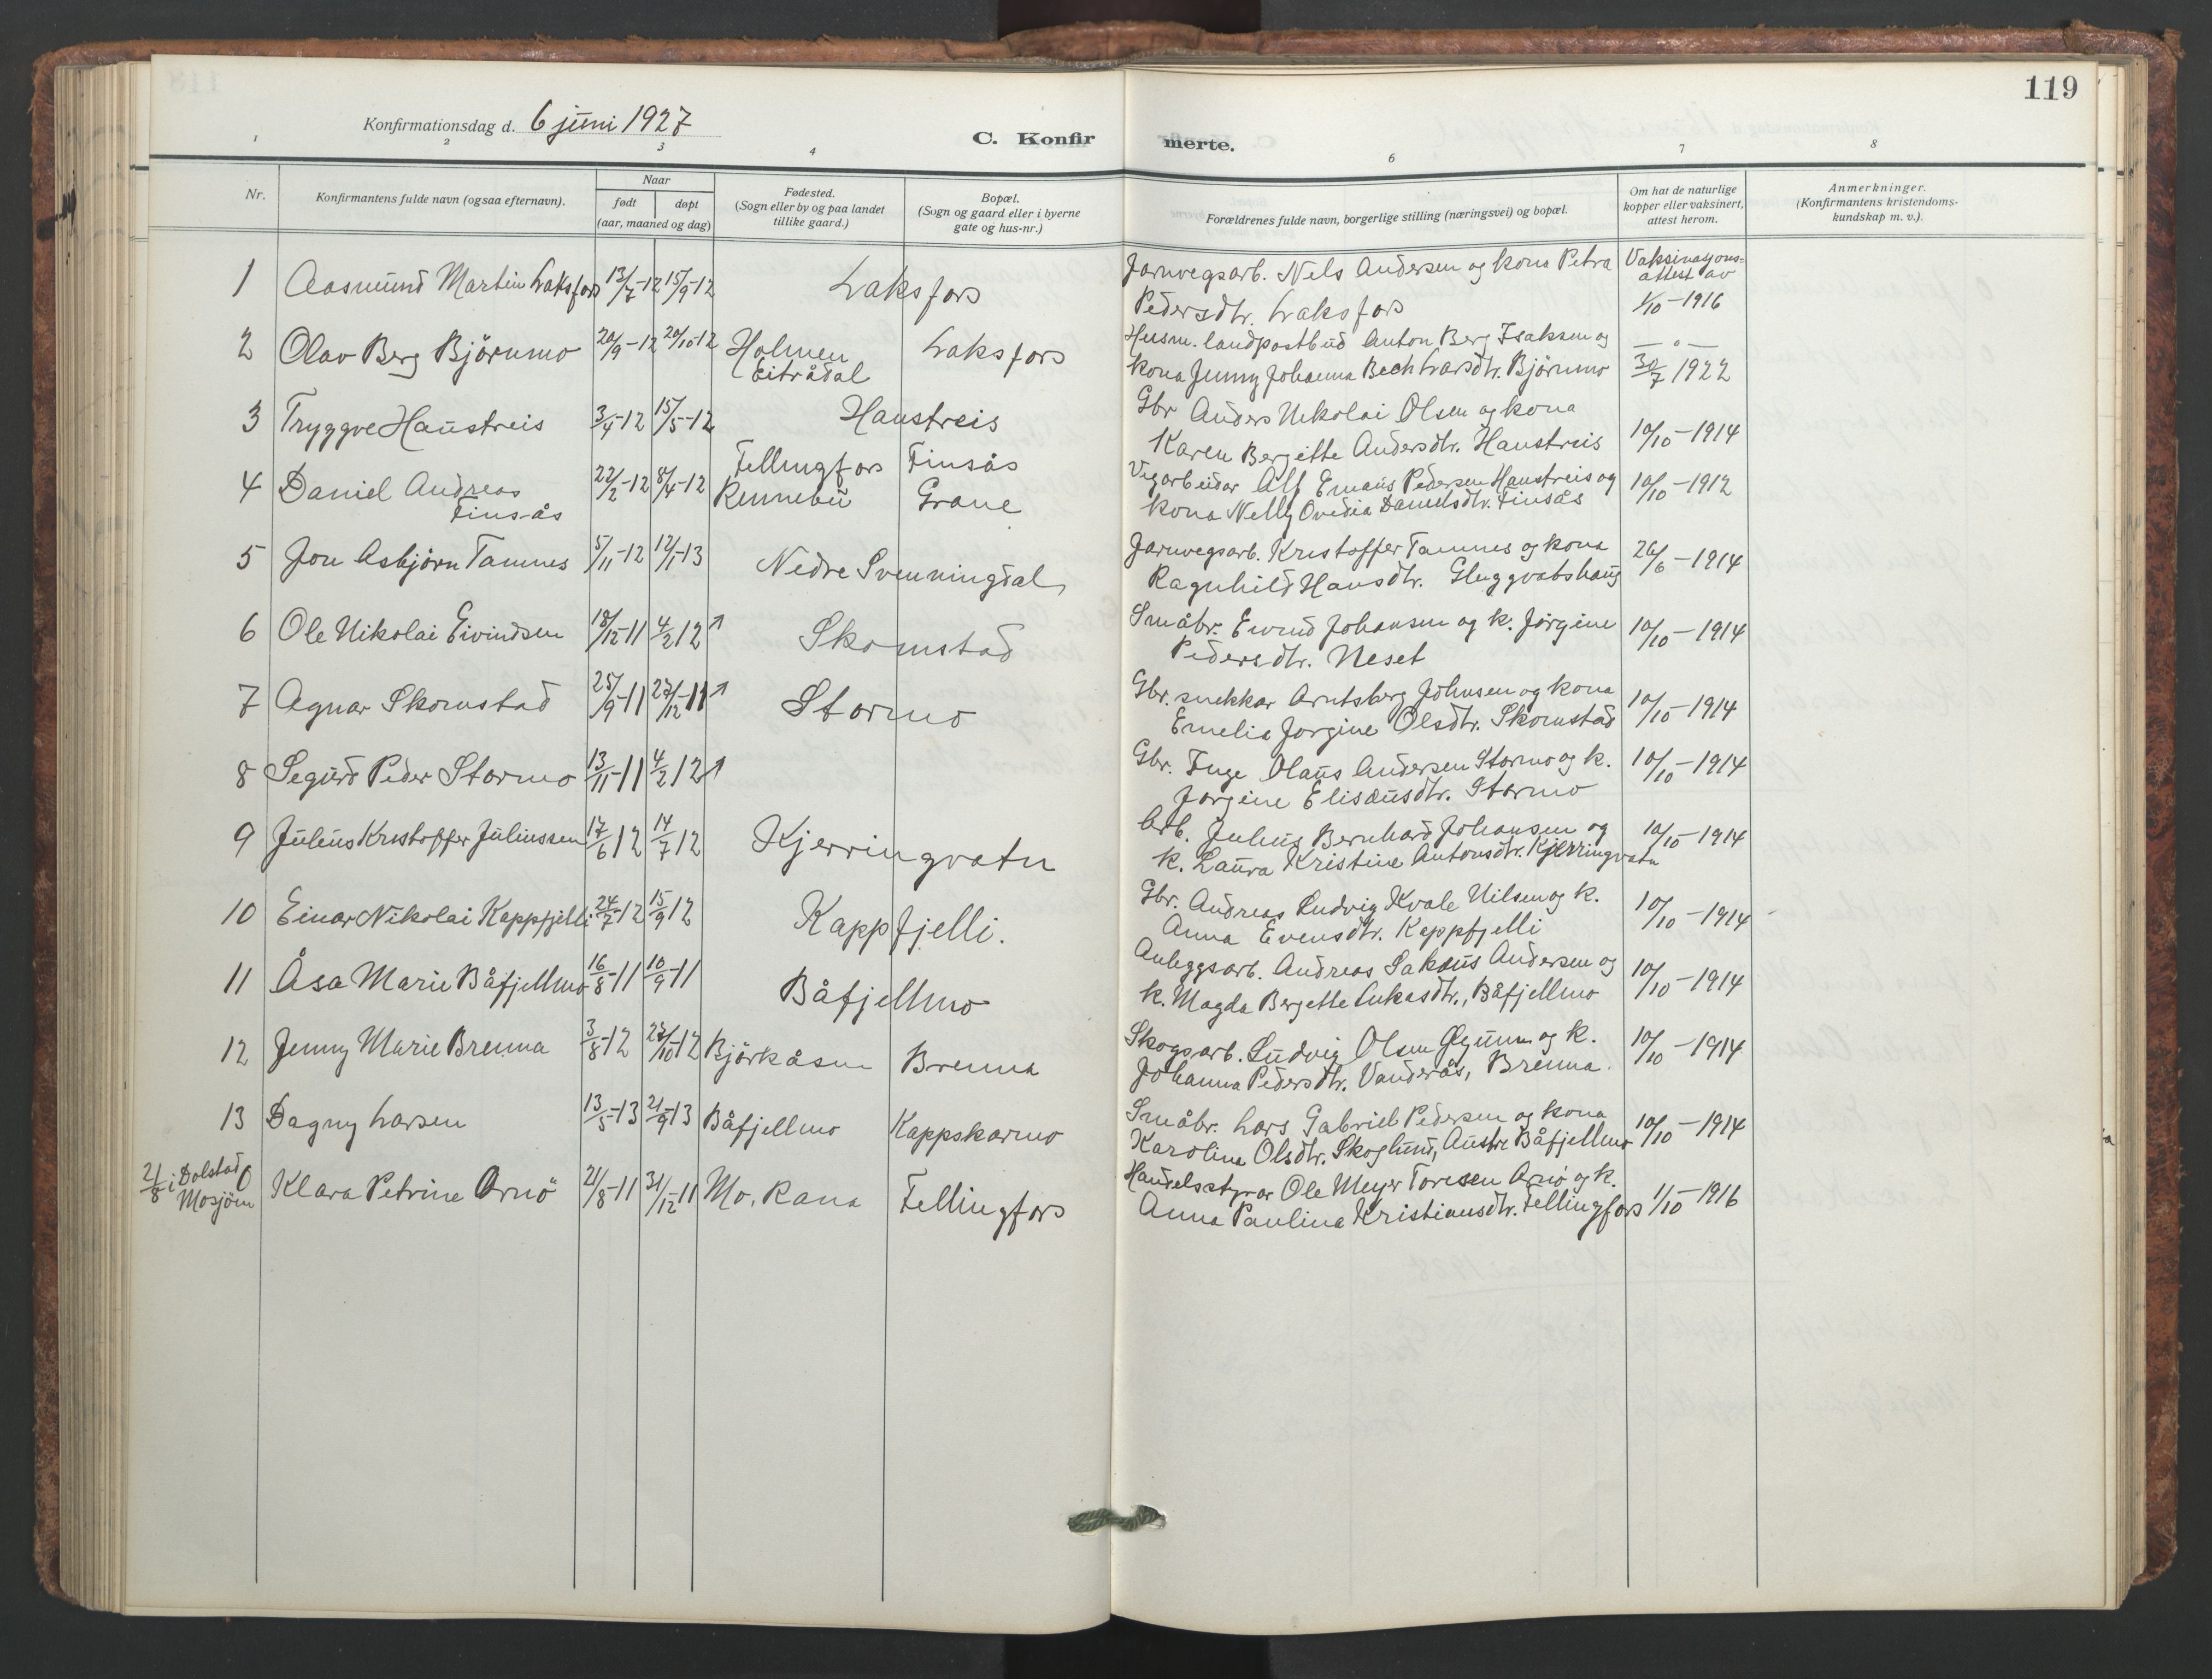 119
Konfirmationsdag d. 6 juni 1927
C. Konfirmerte.
1 2 3 4 6 7 8
Nr.
Konfirmantens fulde navn (ogsaa efternavn).
Naar
født døpt
(aar, maaned og dag)
Fødested.
(Sogn eller by og paa landet
tillike gaard.)
Bopæl.
(Sogn og gaard eller i byerne
gate og hus-nr.)
Forældrenes fulde navn, borgerlige stilling (næringsvei) og bopæl.
Om hat de naturlige
kopper eller vaksinert,
attest herom.
Anmerkninger.
(Konfirmantens kristendoms-
kundskap m. v.).
1 Aasmund Martin Laksfors 13/7-12 15/9-12 Laksfors
Jarnvegsarb. Nels Andersen og kona Petra
Pedersdtr. Laksfors
Vaksinasjons-
attest av
1/10-1916
2 Olav Berg Björnmo 20/9-12 20/10-12 Holmen
Eitrådal
Laksfors
Husm. landpostbud Anton Berg Isaksen og
kona Jenny Johanna Bech Larsdtr. Björnmo
— " —
30/7 1922
3 Tryggve Haustreis 3/4-12 15/5-12 Haustreis
Gbr Anders Nikolai Olsen og kona
Karen Bergitte Andersdtr. Haustreis
10/10-1914
4 Daniel Andreas
Finsås
22/2-12 8/4-12
Fellingfors
Rennebu
Finsås
Grane
Vegarbeidar Alf Emaus Pedersen Haustreis og
kona Nelly Ovidia Danielsdtr. Finsås
10/10-1912
5 Jon Asbjörn Tamnes 5/11-12 12/1-13 Nedre Svenningdal
Jarnvegsarb. Kristoffer Tamnes og kona
Ragnhild Hansdtr. Gluggvatshaug
26/6-1914
6 Ole Nikolai Eivindsen 18/12-11 4/2 12 ↑ Skomstad
Småbr. Eivind Johansen og k. Jörgine
Pedersdtr. Neset
10/10-1914
7 Agnar Skomstad 25/9-11 27/12-11 ↑ Stormo
Gbr. snekkar Arntsberg Johnsen og kona
Emelia Jorgine Olsdtr. Skomstad
10/10-1914
8 Segurd Peder Stormo 13/11-11 4/2 12 ↑
Gbr. Inge Olaus Andersen Stormo og k.
Jorgine Elisæusdtr. Stormo
10/10-1914
9 Julius Kristoffer Juliussen 17/6 12 14/7 12 Kjerringvatn
Arb. Julius Bernhard Johansen og
k. Laura Kristine Antonsdtr. Kjerringvatn
10/10-1914
10 Einar Nikolai Kappfjelli 24/7-12 15/9 12 Kappfjelli.
Gbr. Andreas Ludvig Kvale Nilsen og k.
Anna Evensdtr. Kappfjelli
10/10-1914
11 Åsa Marie Båfjellmo 16/8-11 10/9-11 Båfjellmo
Anleggsarb. Andreas Sakæus Andersen og
k. Magda Bergette Lukasdtr., Båfjellmo
10/10-1914
12 Jenny Marie Brenna 3/8-12 27/10-12 Björkåsen Brenna
Skogsarb. Ludvig Olsen og k.
Johanna Pedersdtr. Vanderås, Brenna.
10/10-1914
13 Dagny Larsen 13/5-13 21/9-13 Båfjellmo Kappskarmo
Småbr. Lars Gabriel Pedersen og kona
Karolina Olsdtr. Skoglund, Austre Båfjellmo
10/10-1914
21/8 i Dolstad
Mosjöen
0 Klara Petrine Arnö 21/8-11 31/12-11 Mo, Rana Fellingfors
Handelsstyrar Ole Meyer Toresen Arnö og k.
Anna Paulina Kristiansdtr. Fellingfors
1/10-1916